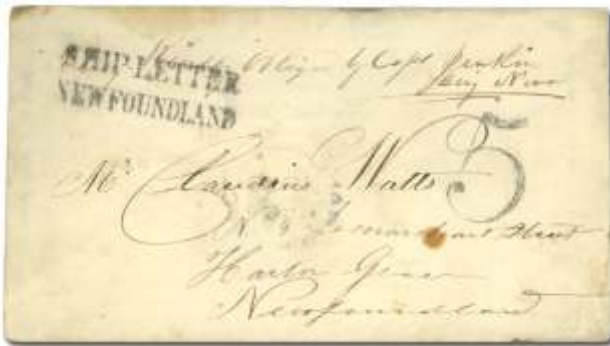 SHIP-LETTER
NEWFOUNDLAND
Kindly Oblig'd by Capt Jenkin
5
Mr Claudius Watts
Street
Harbor Grace
Newfoundland